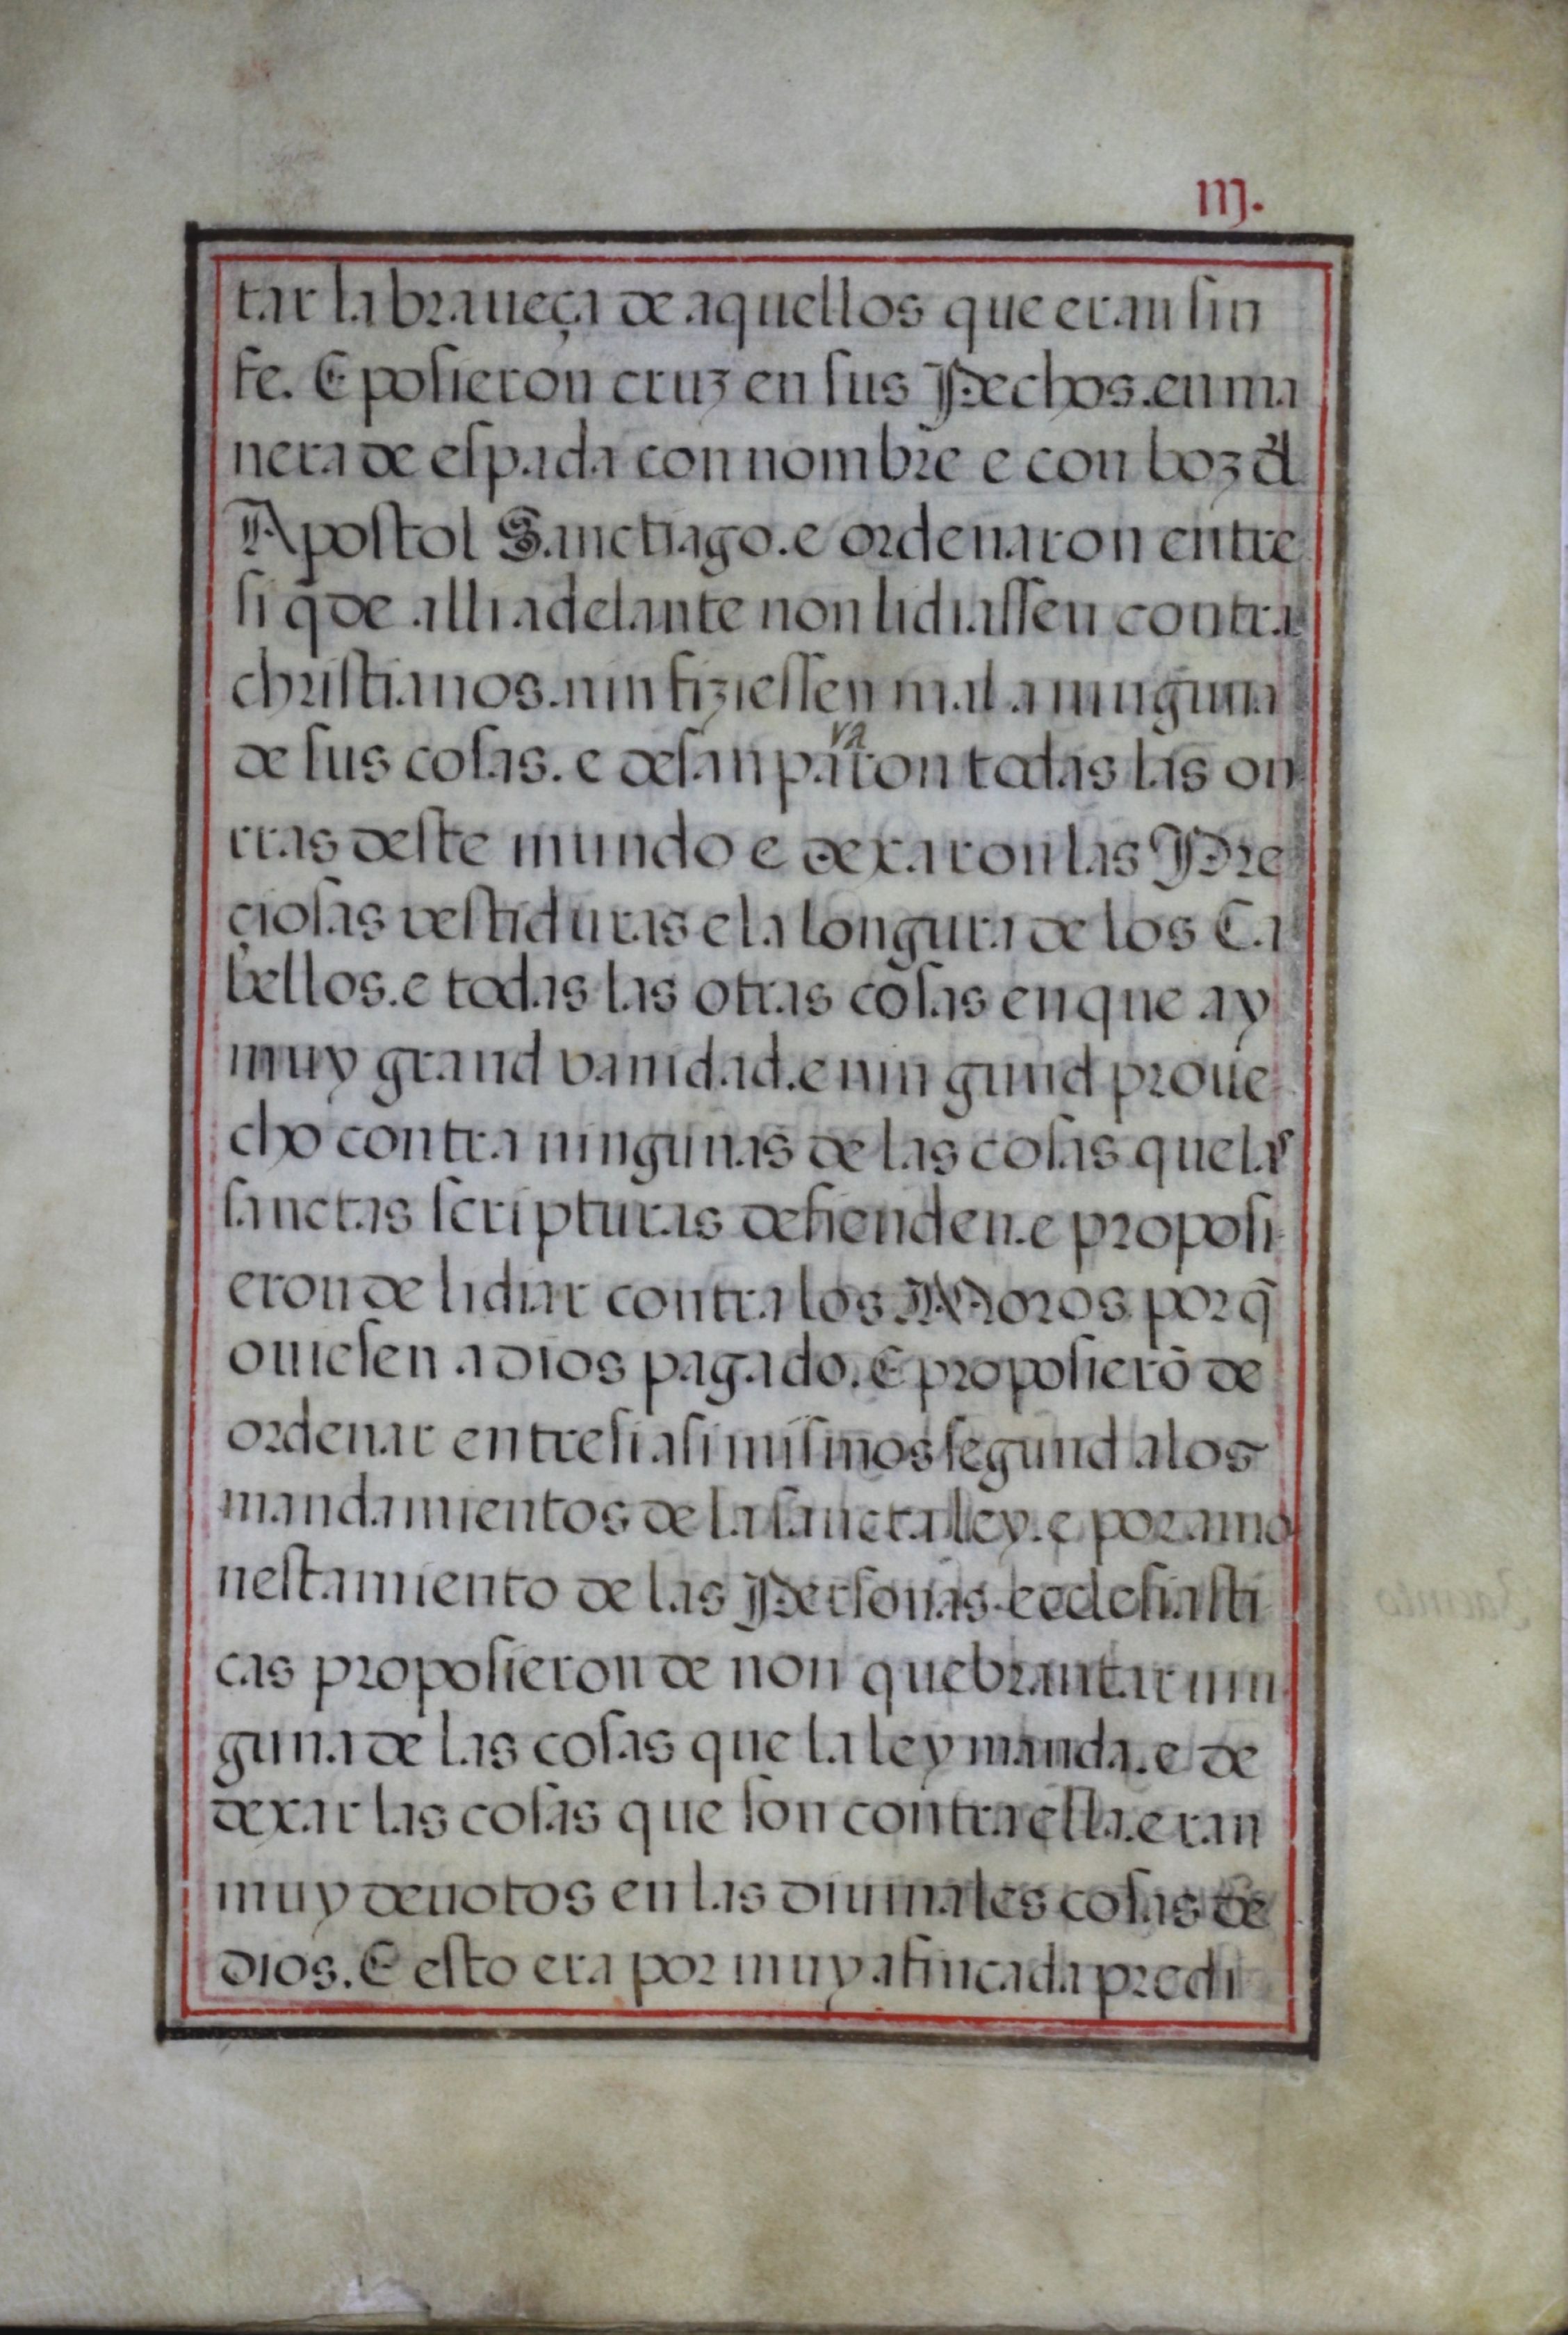 iij.
tar la braueça de aquellos que eran sin
fe. E posieron cruz en sus Pechos. en ma
nera de espada con nombre e con boz dl
Apostol Sanctiago. e ordenaron entre
si q̃ de alli adelante non lidiassen contra
christianos. nin fiziessen mal a ninguna
de sus cosas. e desanpararon todas las on
rras deste mundo e dexaron las Pre
çiosas vestiduras e la longura de los Ca
bellos. e todas las otras cosas en que ay
muy grand vanidad. e nin gund proue
cho contra ningunas de las cosas que las
sanctas scripturas defienden. e proposi
eron de lidiar contra los Moros porq̃
ouiesen a dios pagado. E proposierõ de
ordenar entre si asi mismos segund a los
mandamientos de la sancta ley. e por amo
nestamiento de las Personas ecclesiasti
cas proposieron de non quebrantar nin
guna de las cosas que la ley manda. e de
dexar las cosas que son contra ella. eran
muy deuotos en las diuinales cosas de
dios. E esto era por muy afincada predi